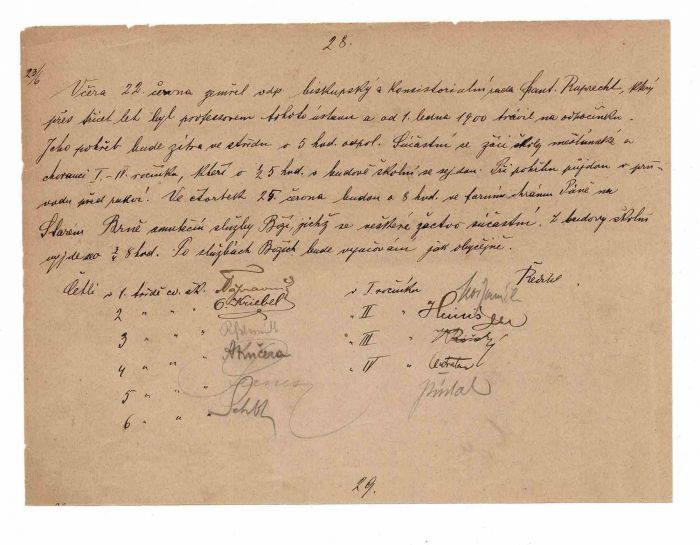 28.
23/6
Včera 22. června zemřel vdp. biskupský a konsistoriální rada Frant. Ruprecht, který
přes třicet let byl professorem tohoto ústavu a od 1. ledna 1900 trávil na odpočinku.
Jeho pohřeb bude zítra ve středu o 5 hod. odpol. Súčastní se žáci školy měšťanské a
chovanci I.-IV. ročníku, kteří o ½5 hod. v budově školní se sejdou. Při pohřbu půjdou v prů-
vodu před rakví. Ve čtvrtek 25. června budou o 8 hod. ve farním chrámu Páně na
Starém Brně smuteční služby Boží, jichž se veškeré žactvo súčastní. Z budovy školní
vyjde se ¾ 8 hod. Po službách Božích bude vyučování jak obyčejně.
Ředitel
Četli v 1. třídě cv. šk. v I. ročníku
2 " " Kriebel " II "
3 " " " III "
4 " " A Kučera " IV "
5 " "
6 " "
29.